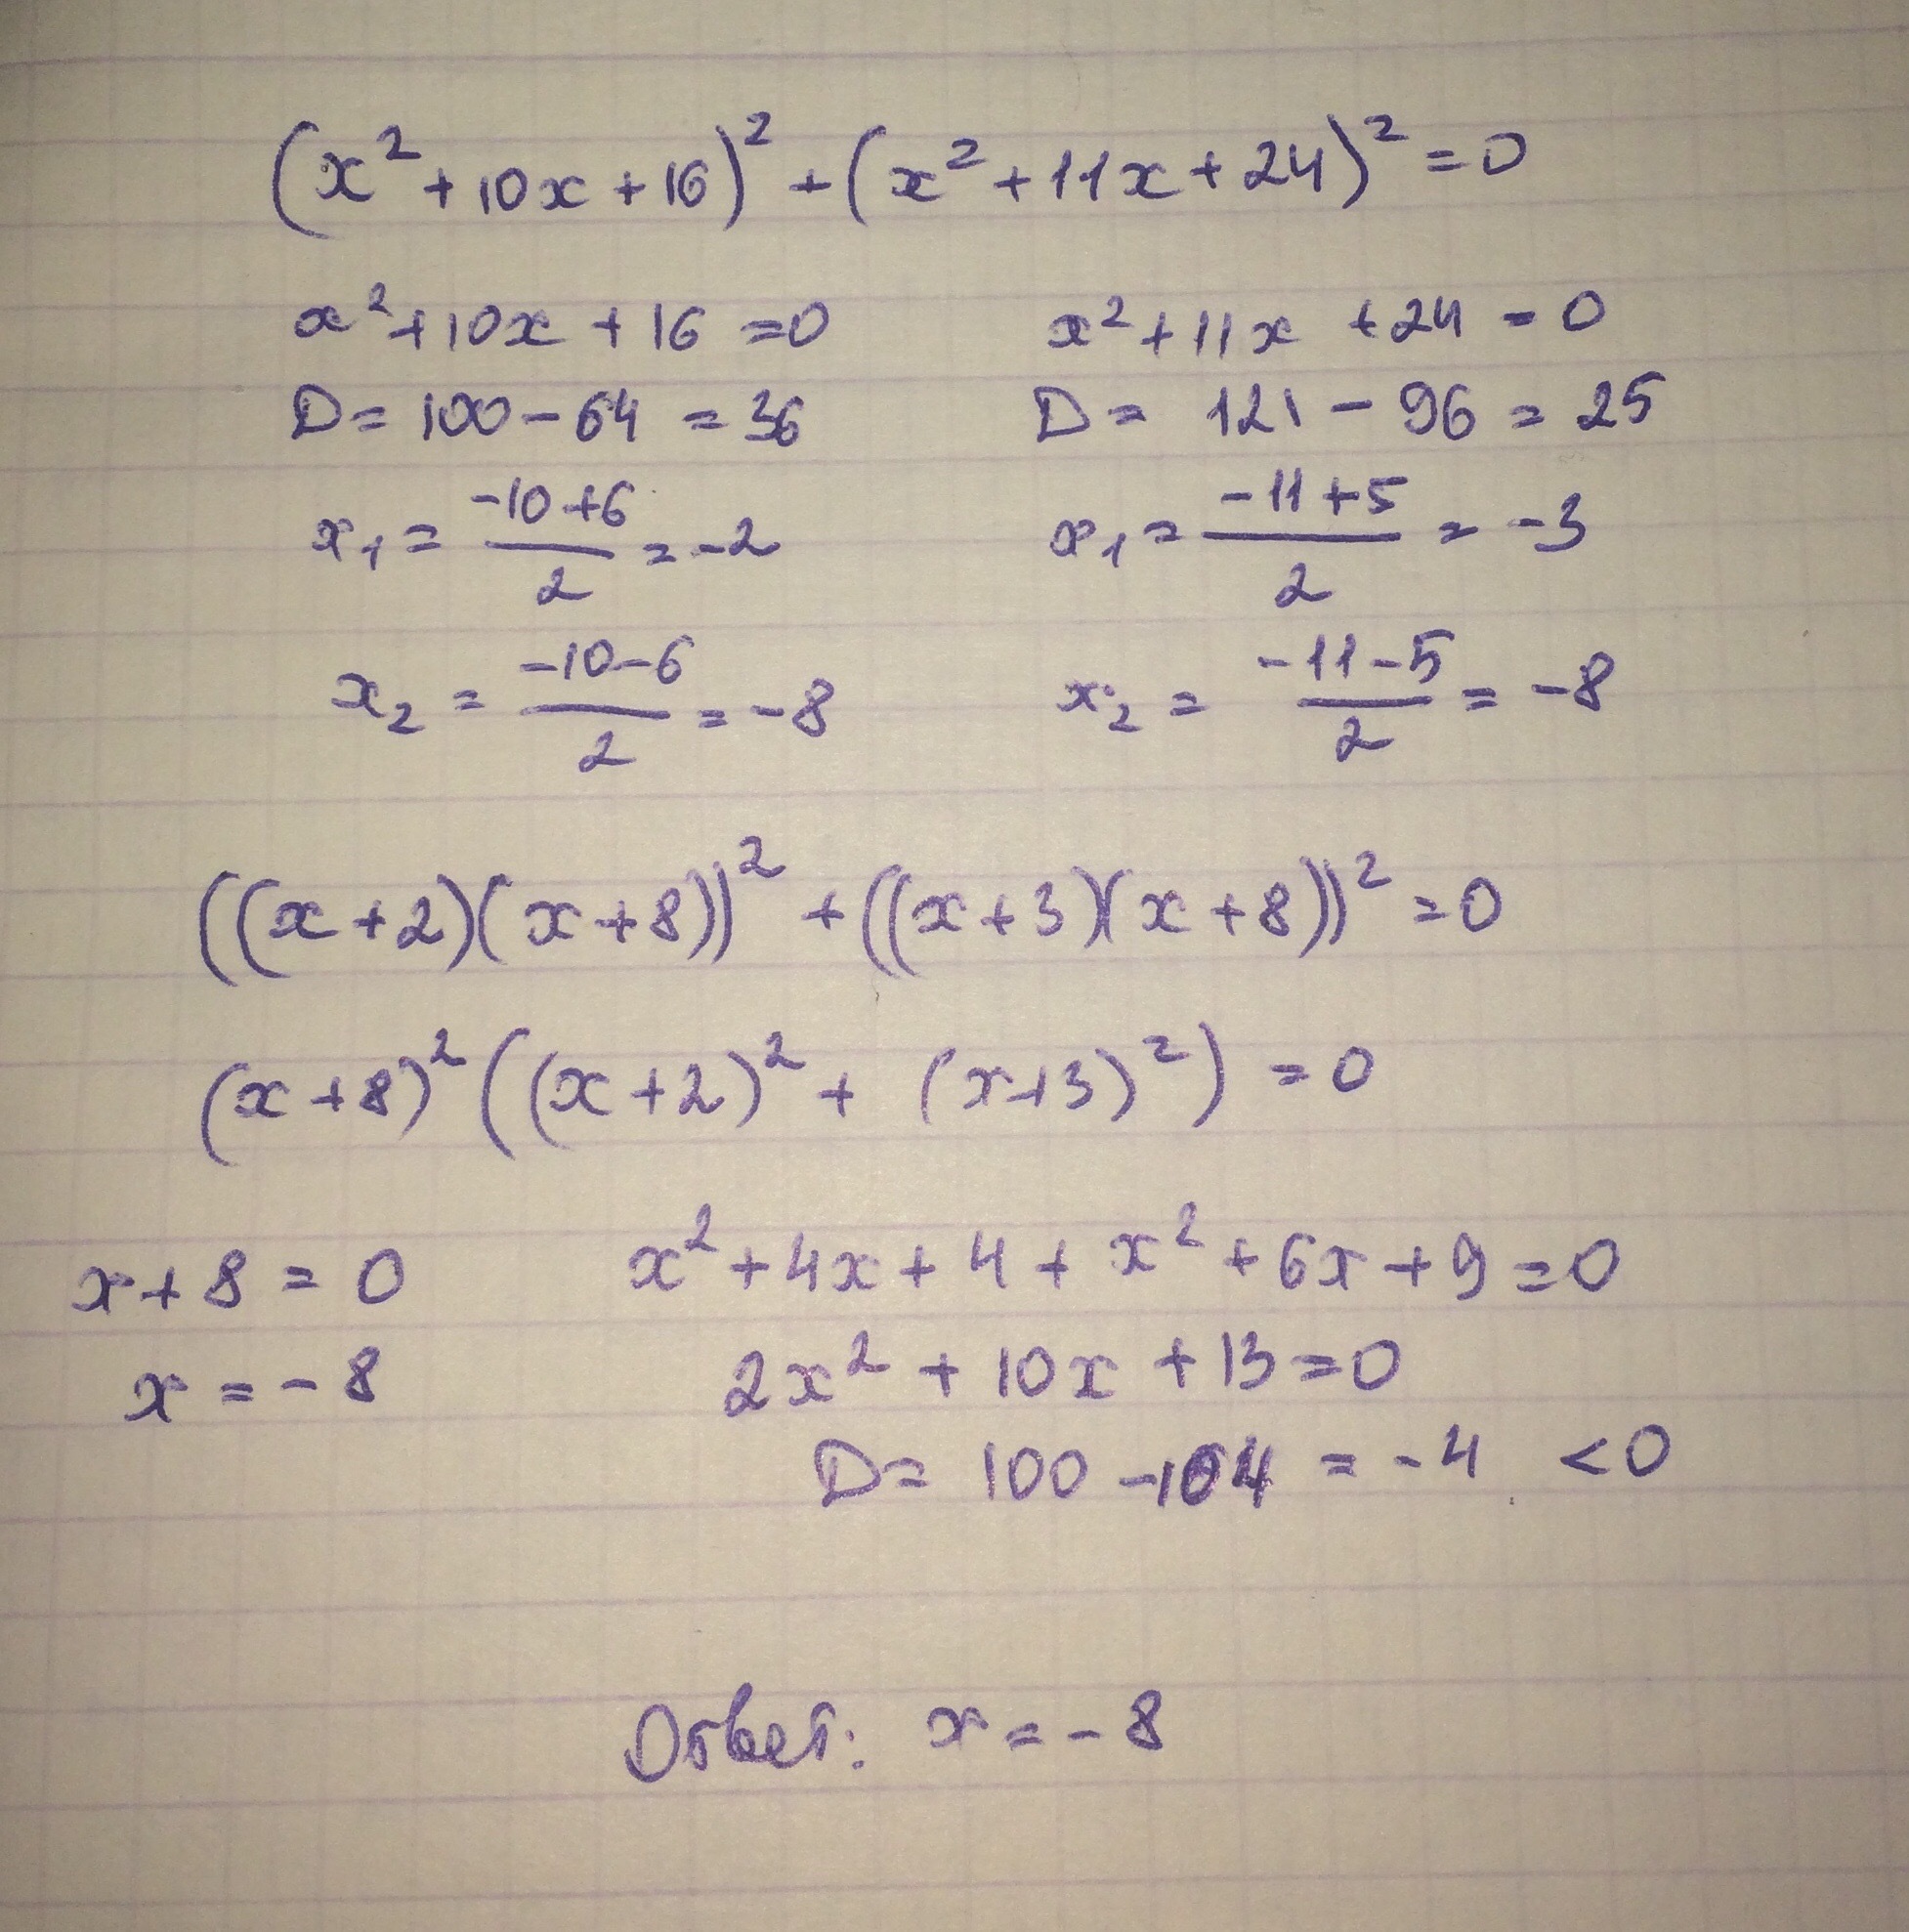 (x² + 10x + 16)² + (x² + 11x + 24)² = 0
x² + 10x + 16 = 0    x² + 11x + 24 = 0
D = 100 - 64 = 36    D = 121 - 96 = 25
x₁ = (-10 + 6)/2 = -2    x₁ = (-11 + 5)/2 = -3
x₂ = (-10 - 6)/2 = -8    x₂ = (-11 - 5)/2 = -8
((x + 2)(x + 8))² + ((x + 3)(x + 8))² = 0
(x + 8)² ((x + 2)² + (x + 3)²) = 0
x + 8 = 0    x² + 4x + 4 + x² + 6x + 9 = 0
x = -8    2x² + 10x + 13 = 0
D = 100 - 104 = -4 < 0
Ответ: x = -8